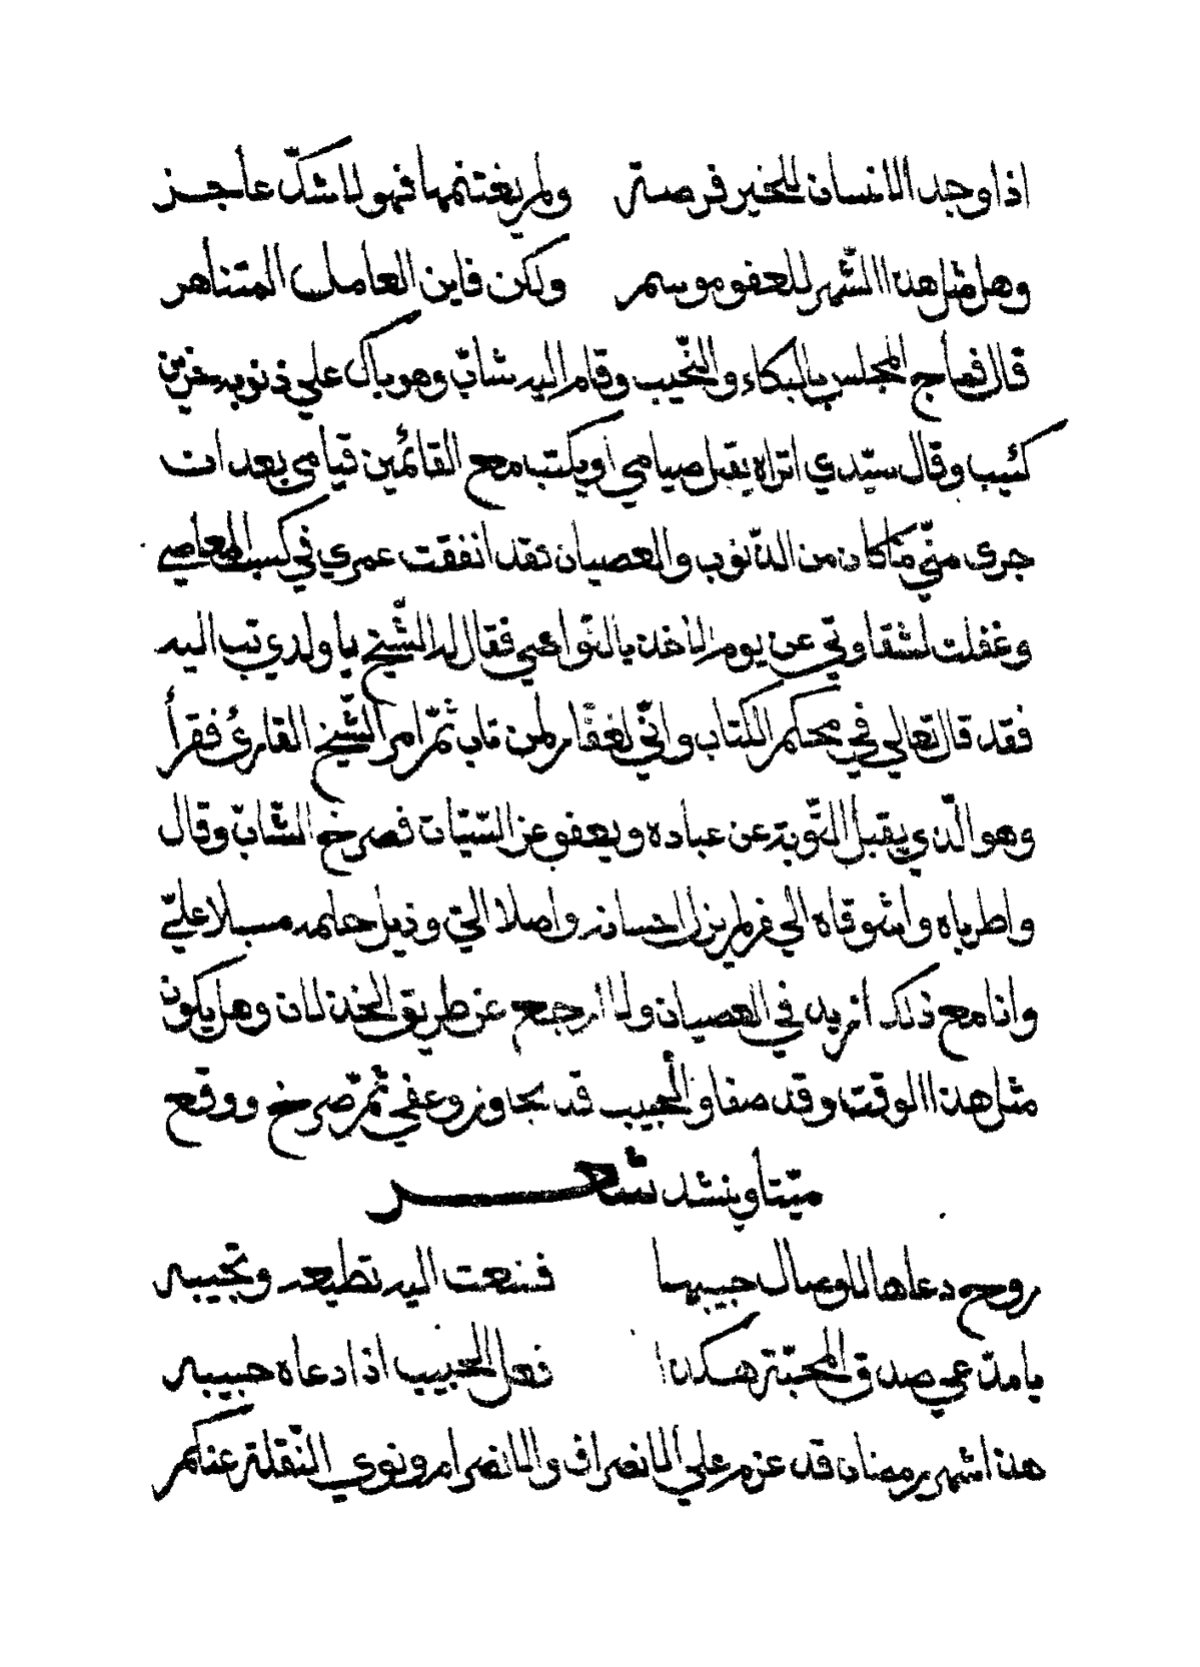 اذا وجد الانسان للخير فرصة ولم يغتنمها فهو لا شكّ عاجز
وهل مثل هذا الشّهر للعفو موسم ولكن فاين العامل المتناهر
قال فماج المجلس بالبكاء والنّحيب وقام اليه شابّ وهو باك علي ذنوبه حزين
كئيب وقال سيّدي اتراه يقبل صيامي أو يكتب مع القائمين قيامي بعد ان
جرى منّي ما كان من الذّنوب والعصيان فقد انفقت عمري في كسب المعاصي
وغفلت لشقاوتي عن يوم الاخذ بالنّواصي فقال له الشّيخ يا ولدي تب اليه
فقد قال تعالي في محكم الكتاب وانّي لغفّار لمن تاب ثمّ امر الشّيخ القارئ فقرأ
وهو الّذي يقبل التّوبة عن عباده ويعفو عن السّيّات فصرخ الشّابّ وقال
واطرباه واشوقاه الي من لم يزل احسانه واصلا اليّ وذيل حلمه مسبلا عليّ
وانا مع ذلك ازيد في العصيان ولا ارجع عن طريق الخذلان وهل يكون
مثل هذا الوقت وقد صفا والحبيب قد تجاوز وعفي ثمّ صرخ ووقع
ميّتا وينشد شعر
روح دعاها للوصال حبيبها فسعت اليه تطيعه وتجيبه
يا مدّعي صدق المحبّة هكذا فعل الحبيب اذا دعاه حبيبه
هذا شهر رمضان قد عزم علي الانصراف والانصرام ونوي النّقلة عنكم